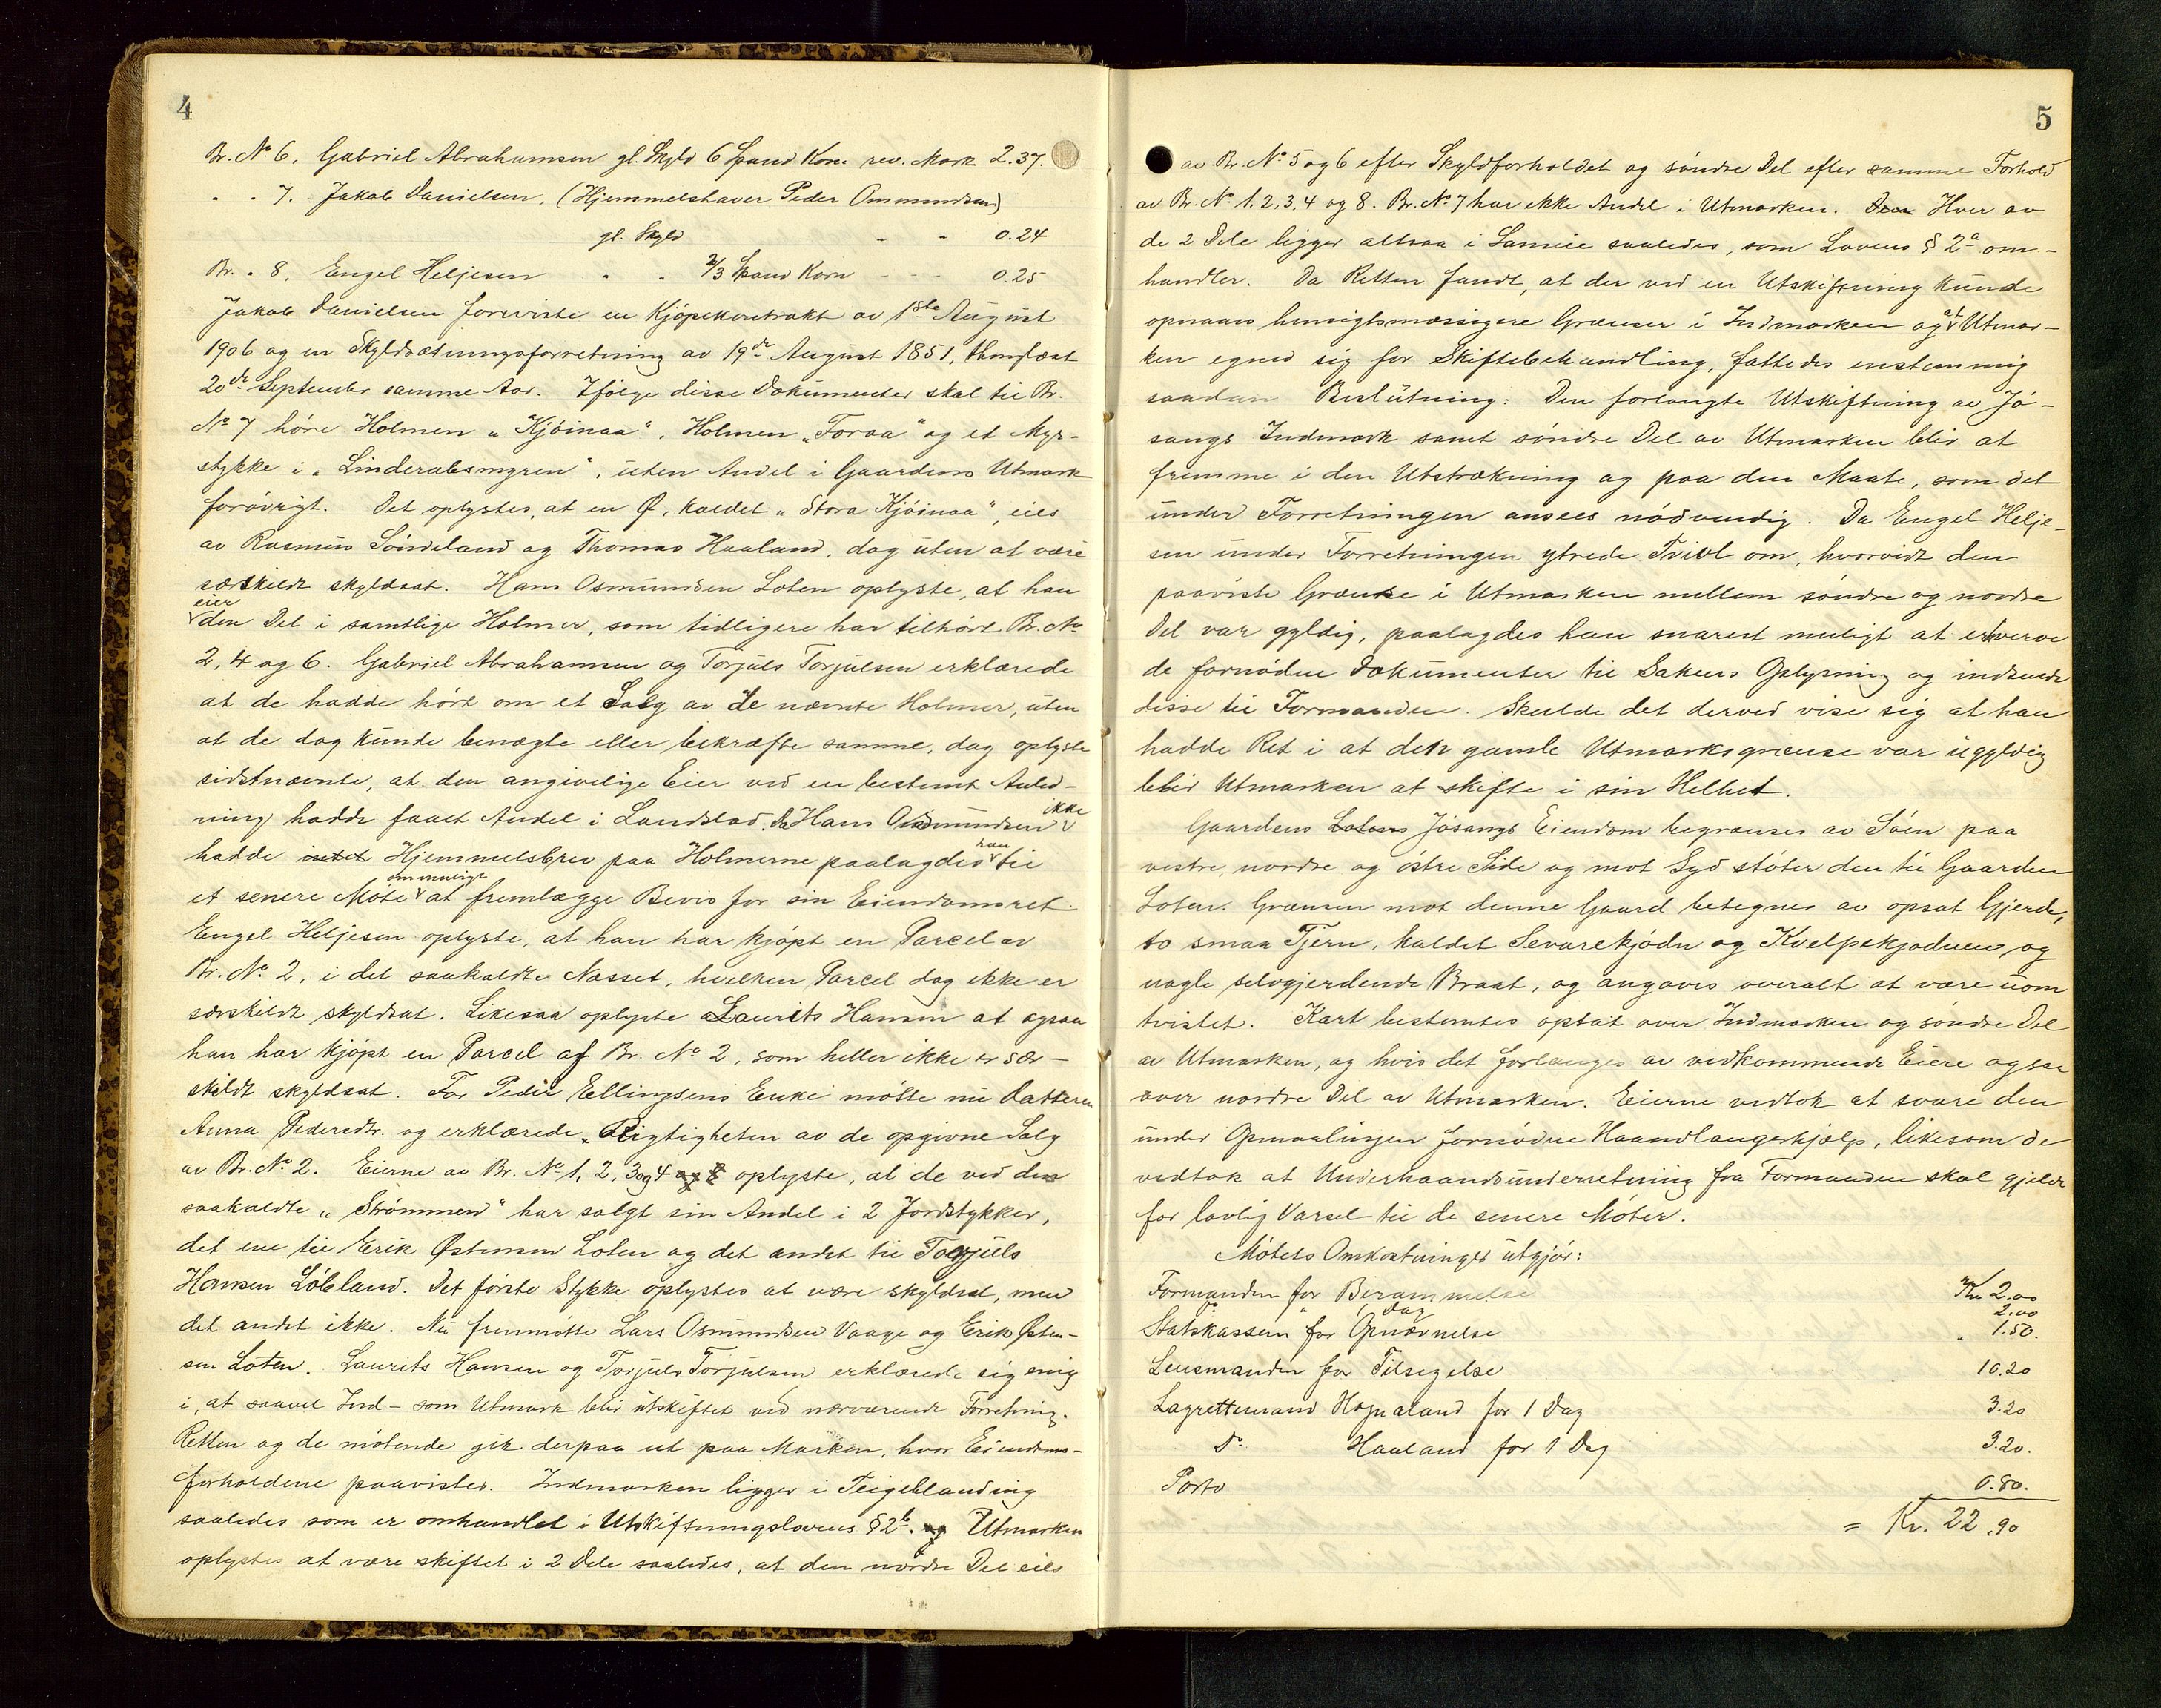 4
Br. No 6. Gabriel Abrahamsen gl. Skyld 6 Spand Korn rev. Mark 2.37.
" " 7. Jakob Danielsen, (Hjemmelshaver Peder Ommundsen)
gl. Skyld " " 0.24
Br. " 8. Engel Heljesen " " 2/3 Spand Korn - - - 0.25
Jakob Danielsen foreviste en Kjøpekontrakt av 1ste August
1906 og en Skyldsætningsforretning av 19de August 1851, thinglæst
20de September samme Aar. Ifølge disse Dokumenter skal til Br.
No 7 høre Holmen „Kjøinaa“, Holmen „Foraa“ og et Myr-
stykke i „Linderabsmyren“, uten Andel i Gaardens Utmark
forøvrigt. Det oplystes, at en Ø, kaldet „Stora Kjøinaa“, eies
av Rasmus Søndeland og Thomas Haaland, dog uten at være
særskildt skyldsat. Hans Osmundsen Loten oplyste, at han
eier
den Del i samtlige Holmer, som tidligere har tilhørt Br. No
2, 4 og 6. Gabriel Abrahamsen og Torjuls Torjulsen erklærede
at de hadde hørt om et Salg av de nævnte Holmer, uten
at de dog kunde benægte eller bekræfte samme, dog oplyste
sidstnævnte, at den angivelige Eier ved en bestemt Anled-
ning hadde faaet Andel i Landslod. Da Hans Osmundsen ikke
hadde intet Hjemmelsbrev paa Holmerne paalagdes han til
et senere Møte om muligt at fremlægge Bevis for sin Eiendomsret.
Engel Heljesen oplyste, at han har kjøpt en Parcel av
Br. No 2, i det saakaldte Nasset, hvilken Parcel dog ikke er
særskildt skyldsat. Likesaa oplyste Laurits Hansen at ogsaa
han har kjøpt en Parcel af Br. No 2, som heller ikke er sær-
skildt skyldsat. For Peder Ellingsens Enke møtte nu Datteren
Anna Pedersdtr. og erklærede Rigtigheten av de opgivne Salg
av Br. No 2. Eierne av Br. No 1, 2, 3 og 4 og 8 oplyste, at de ved den
saakaldte „Strømmen“ har solgt sin Andel i 2 Jordstykker,
det ene til Erik Østensen Loten og det andet til Torjuls
Hansen Løbland. Det første Stykke oplystes at være skyldsat, men
det andet ikke. Nu fremmøtte Lars Osmundsen Vaage og Erik Østen-
sen Loten. Laurits Hansen og Torjuls Torjulsen erklærede sig enig
i, at saavel Ind- som Utmark blir utskiftet ved nærværende Forretning.
Retten og de møtende gik derpaa ut paa Marken, hvor Eiendoms-
forholdene paavistes. Indmarken ligger i Teigeblanding
saaledes som er omhandlet i Utskiftningslovens § 2b. og Utmarken
oplystes at være skiftet i 2 Dele saaledes, at den nordre Del eies
5
av Br. No 5 og 6 efter Skyldforholdet og søndre Del efter samme Forhold
av Br. No 1. 2, 3, 4 og 8. Br. No 7 har ikke Andel i Utmarken. Den Hver av
de 2 Dele ligger altsaa i Sameie saaledes, som Lovens § 2a om-
handler. Da Retten fandt, at der ved en Utskiftning kunde
opnaaes hensigtsmæssigere Grænser i Indmarken og at Utmar-
ken egned sig for Skiftebehandling, fattedes enstemmig
saadan Beslutning: Den forlangte Utskiftning av Jø-
sangs Indmark samt søndre Del av Utmarken blir at
fremme i den Utstrækning og paa den Maate, som det
under Forretningen ansees nødvendig. Da Engel Helje-
sen under Forretningen ytrede Tvivl om, hvorvidt den
paaviste Grænse i Utmarken mellem søndre og nordre
Del var gyldig, paalagdes han snarest muligt at erhverve
de fornødne Dokumenter til Sakens Oplysning og indsende
disse til Formanden. Skulde det derved vise sig at han
hadde Ret i at den gamle Utmarksgrænse var ugyldig
blir Utmarken at skifte i sin Helhet.
Gaardens Lotens Jøsangs Eiendom begrænses av Søen paa
vestre, nordre og østre Side og mot Syd støter den til Gaarden
Loten. Grænsen mot denne Gaard betegnes av opsat Gjerde,
to smaa Tjern, kaldet Sevarekjødn og Kvelpekjødnen, og
nogle selvgjerdende Braat, og angaves overalt at være uom
tvistet. Kart bestemtes optat over Indmarken og søndre Del
av Utmarken, og hvis det forlanges av vedkommende Eiere ogsaa
over nordre Del av Utmarken. Eierne vedtok at svare den
under Opmaalingen fornødne Haandlangerhjælp, likesom de
vedtok at Underhaandsunderretning fra Formanden skal gjelde
for lovlig Varsel til de senere Møter.
Møtets Omkostninger utgjør:
Formanden for Berammelse Kr 2.00
Do " 1 Dag 2.00
Statskassen for Opnævnelse " 1.50.
Lensmanden for Tilsigelse 10.20
Lagrettemand Hognaland for 1 Dag 3.20
Do Haaland for 1 Dag 3.20.
Porto 0.80.
= Kr. 22.90